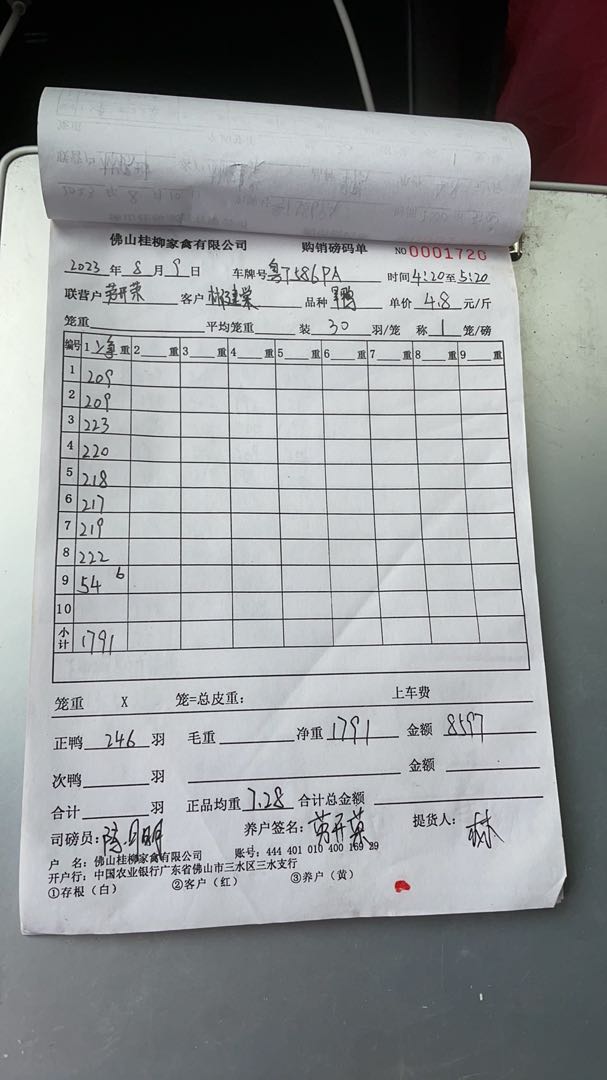 佛山桂柳家禽有限公司 购销磅码单 NO 0001720
2023 年 8 月 9 日 车牌号 粤T586PA 时间 4:20 至 5:20
联营户 劳开荣 客户 品种 单价 4.8 元/斤
笼重 平均笼重 装 30 羽/笼 称 1 笼/磅
编号 1 净 重 2 重 3 重 4 重 5 重 6 重 7 重 8 重 9 重
1 209
2 209
3 223
4 220
5 218
6 217
7 219
8 222
9 54 6
10
小计 1791
笼重 X 笼=总皮重： 上车费
正鸭 246 羽 毛重 净重 1791 金额 8597
次鸭 羽 金额
合计 羽 正品均重 7.28 合计总金额
司磅员： 养户签名：劳开荣 提货人：林
户 名：佛山桂柳家禽有限公司 账号：444 401 010 400 169 29
开户行：中国农业银行广东省佛山市三水区三水支行
①存根（白） ②客户（红） ③养户（黄）